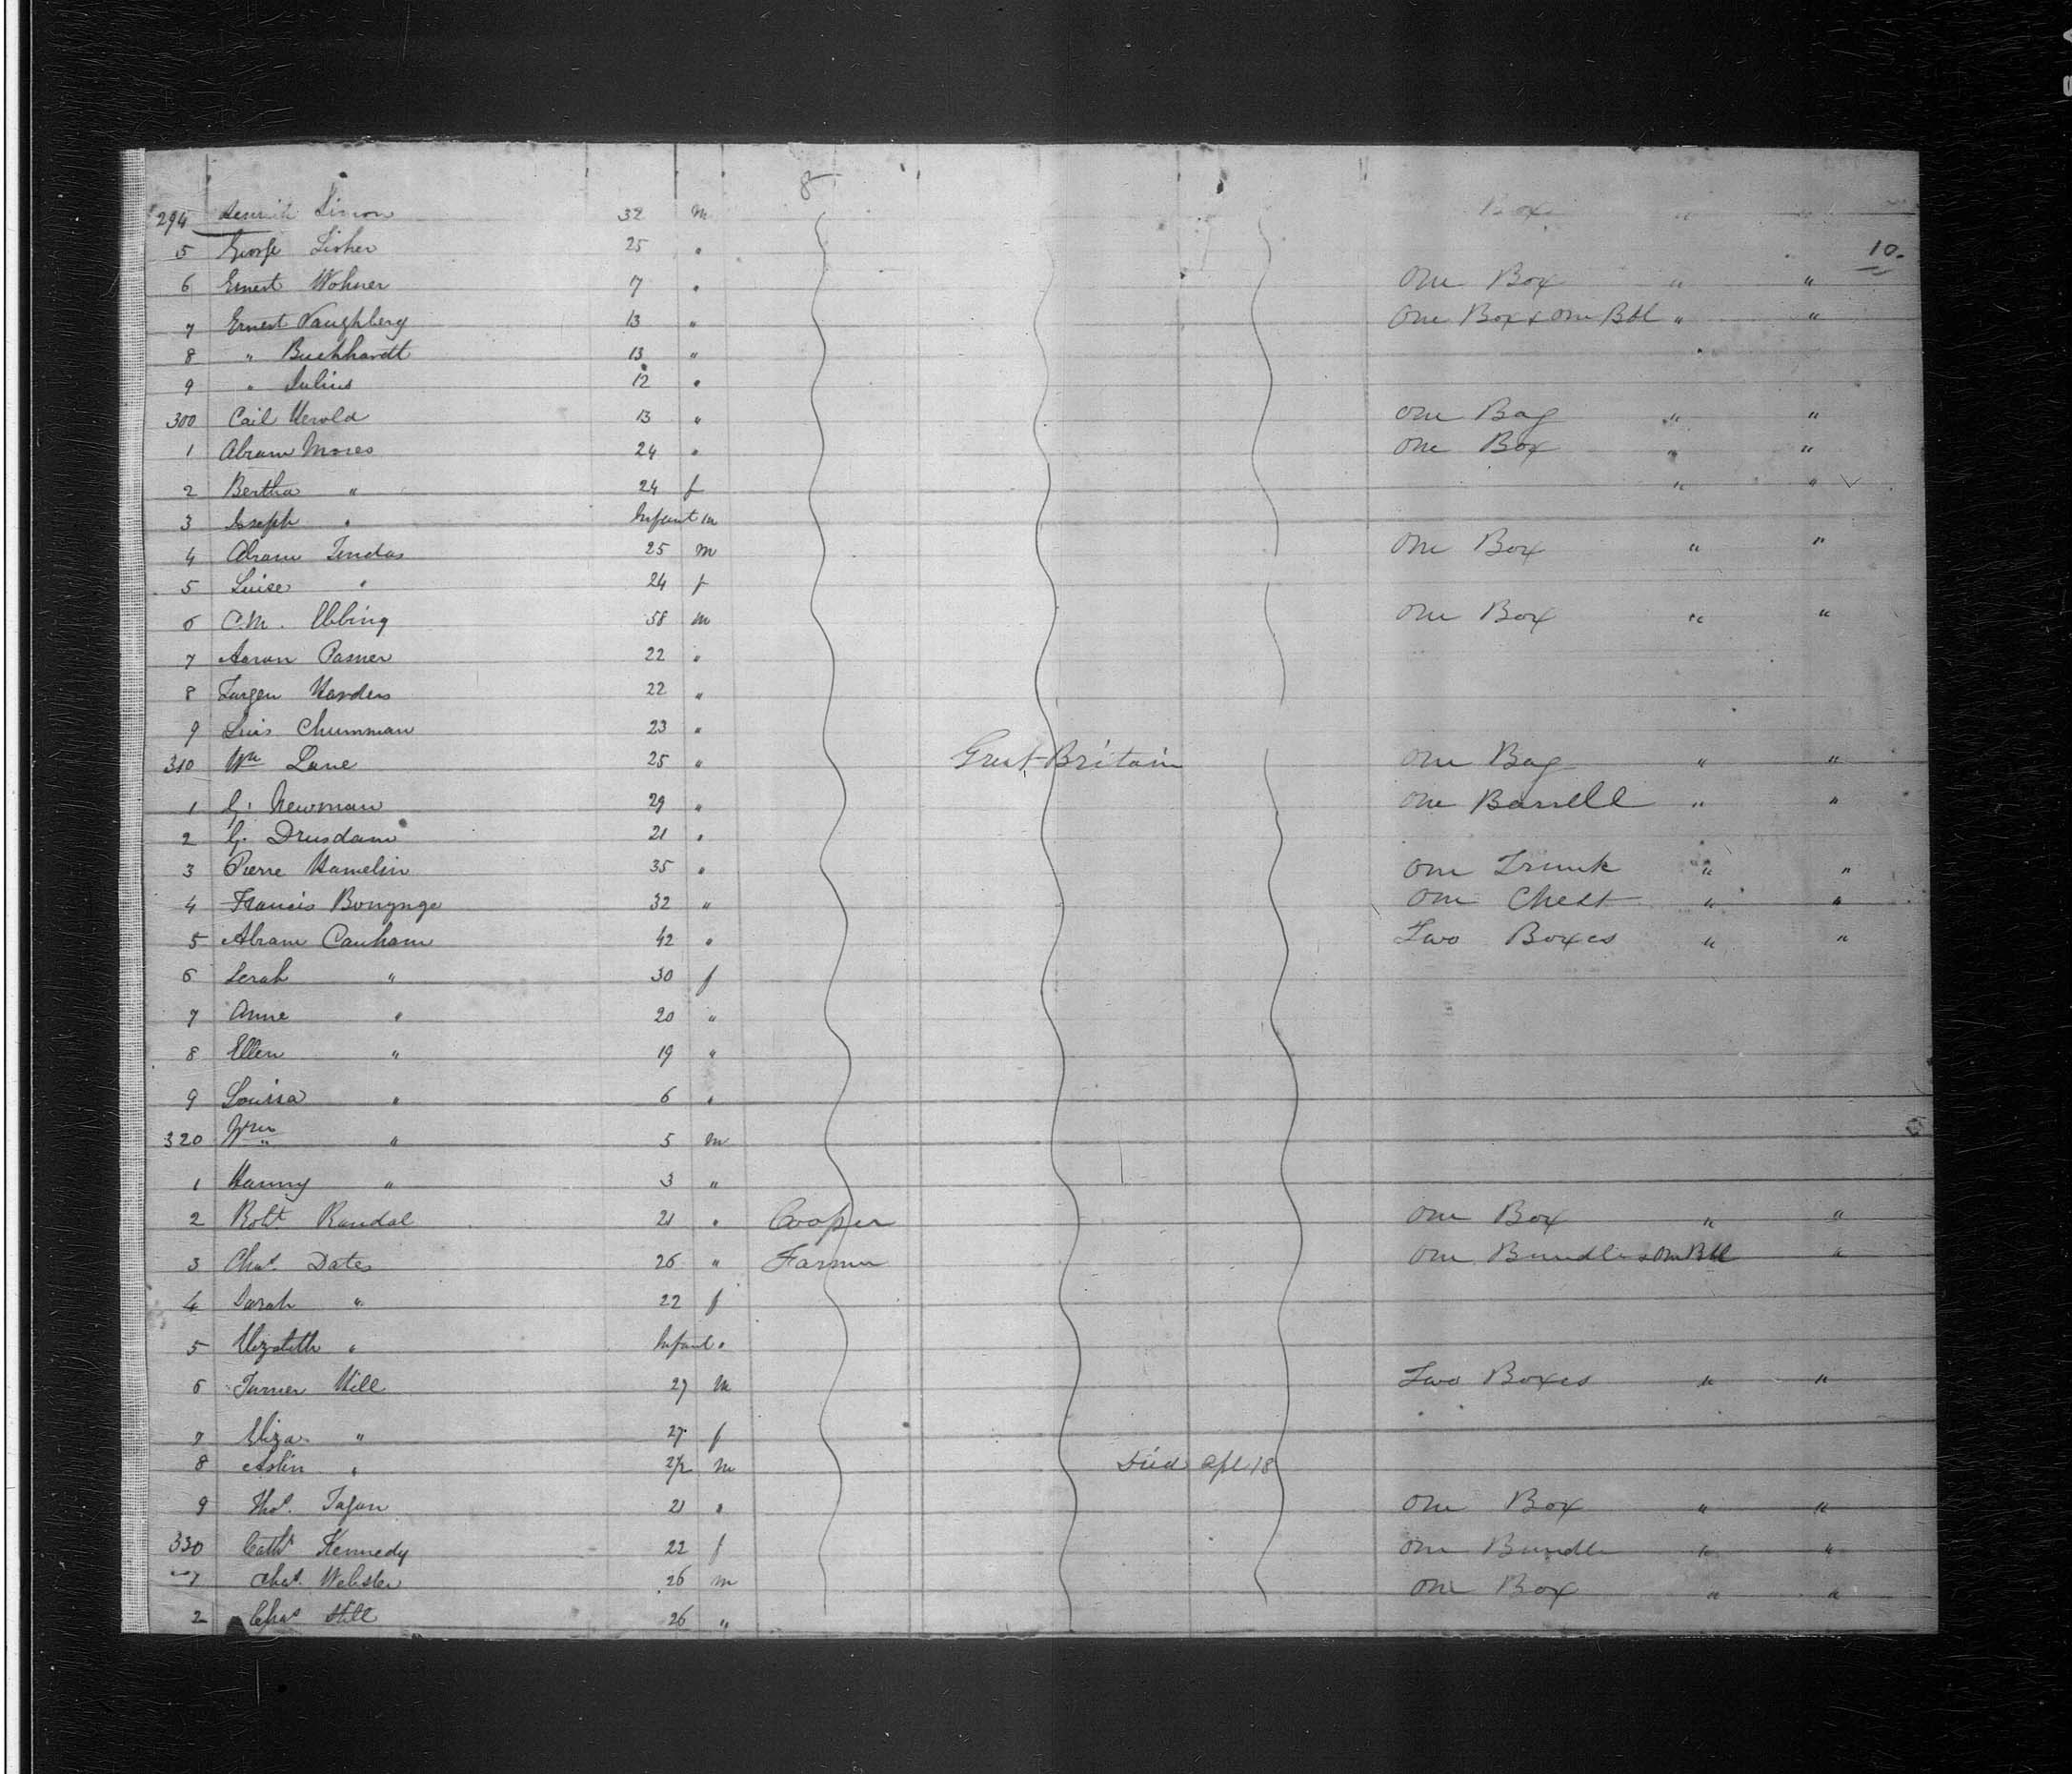 8
294 Henrich Simon 32 m Box " "
5 George Lisher 25 " 10.
6 Ernest Wohner 7 " One Box " "
7 Ernest Vaughberg 13 " One Box & One Bbl " "
8 " Buchhardt 13 "
9 " Julius 12 "
300 Carl Herold 13 " One Bag " "
1 Abram Moses 24 " One Box " "
2 Bertha " 24 f " "
3 Joseph " Infant m
4 Abram 25 m One Box " "
5 Luise " 24 f
6 C.M. Ebbing 58 m One Box " "
7 Aaron Pasner 22 "
8 Jurgen Harders 22 "
9 Luis Chumman 23 "
310 Wm Lane 25 " Great Britain One Bag " "
1 G. Newman 29 " One Barrell " "
2 G. Drusdam 21 "
3 Pierre Hamelin 35 " One Trunk " "
4 Francis Bonynge 32 " One Chest " "
5 Abram Canham 42 " Two Boxes " "
6 Serah " 30 f
7 Anne " 20 "
8 Ellen " 19 "
9 Louisa " 6 "
320 Wm " 5 m
1 Hanny " 3 "
2 Robt Randal 21 " Cooper One Box " "
3 Chas. Dates 26 " Farmer One Bundle & One Bbl "
4 Sarah " 22 f
5 Elizabeth " Infant "
6 Turner Hill 27 m Two Boxes " "
7 Eliza " 27 f
8 " 2/2 m Died Apl 18
9 Thos. 21 " One Box " "
330 Cath Kennedy 22 f One Bundle " "
1 Chas. Webster 26 m One Box " "
2 Chas Hill 26 "